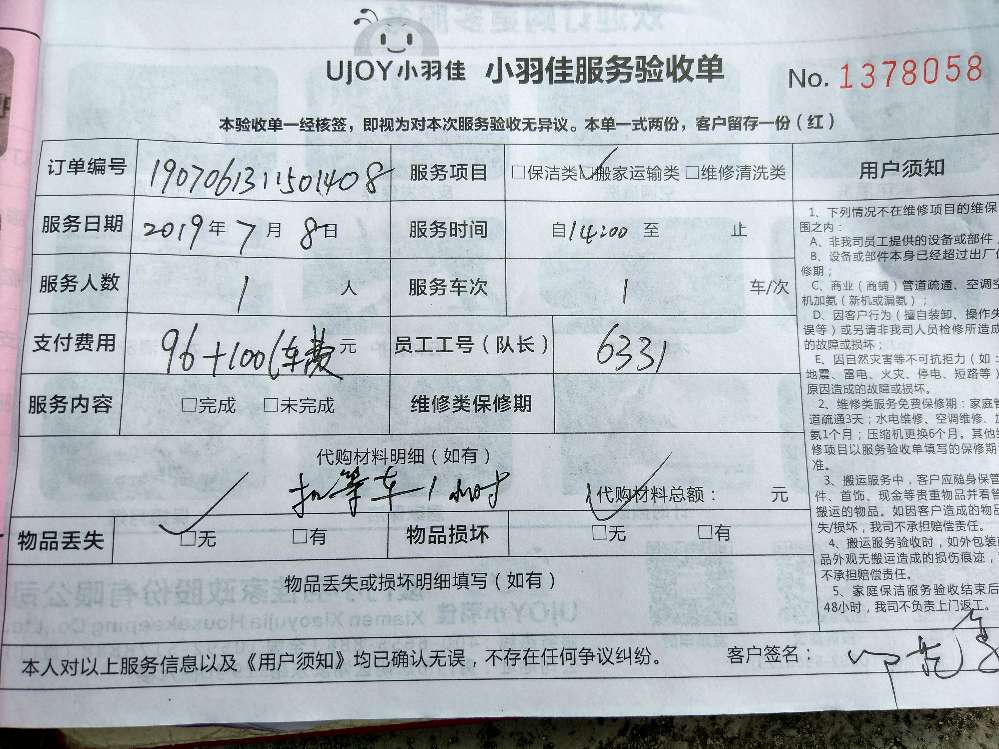 UJOY小羽佳 小羽佳服务验收单 No. 1378058
本验收单一经核签，即视为对本次服务验收无异议。本单一式两份，客户留存一份（红）
订单编号 190706131501408 服务项目 □保洁类 ☑搬家运输类 □维修清洗类 用户须知
服务日期 2019年7月8日 服务时间 自14:00至 止
服务人数 1 人 服务车次 1 车/次
支付费用 96+100(车费 元 员工工号（队长） 6331
服务内容 □完成 □未完成 维修类保修期
代购材料明细（如有）
扣等车1小时 代购材料总额： 元
物品丢失 ☑无 □有 物品损坏 ☑无 □有
物品丢失或损坏明细填写（如有）
本人对以上服务信息以及《用户须知》均已确认无误，不存在任何争议纠纷。 客户签名：
1、下列情况不在维修项目的维保
围之内：
A、非我司员工提供的设备或部件
B、设备或部件本身已经超过出厂
修期；
C、商业（商铺）管道疏通、空调空
机加氨（新机或漏氨）；
D、因客户行为（擅自装卸、操作失
误等）或另请非我司人员检修所造成
的故障或损坏；
E、因自然灾害等不可抗拒力（如：
地震、雷电、火灾、停电、短路等）
原因造成的故障或损坏。
2、维修类服务免费保修期：家庭管
道疏通3天；水电维修、空调维修、
氨1个月；压缩机更换6个月。其他
修项目以服务验收单填写的保修期
准。
3、搬运服务中，客户应随身保管
件、首饰、现金等贵重物品并看管
搬运的物品。如因客户造成的物品
失/损坏，我司不承担赔偿责任。
4、搬运服务验收时，如外包装
品外观无搬运造成的损伤痕迹，
不承担赔偿责任。
5、家庭保洁服务验收结束后
48小时，我司不负责上门返工。